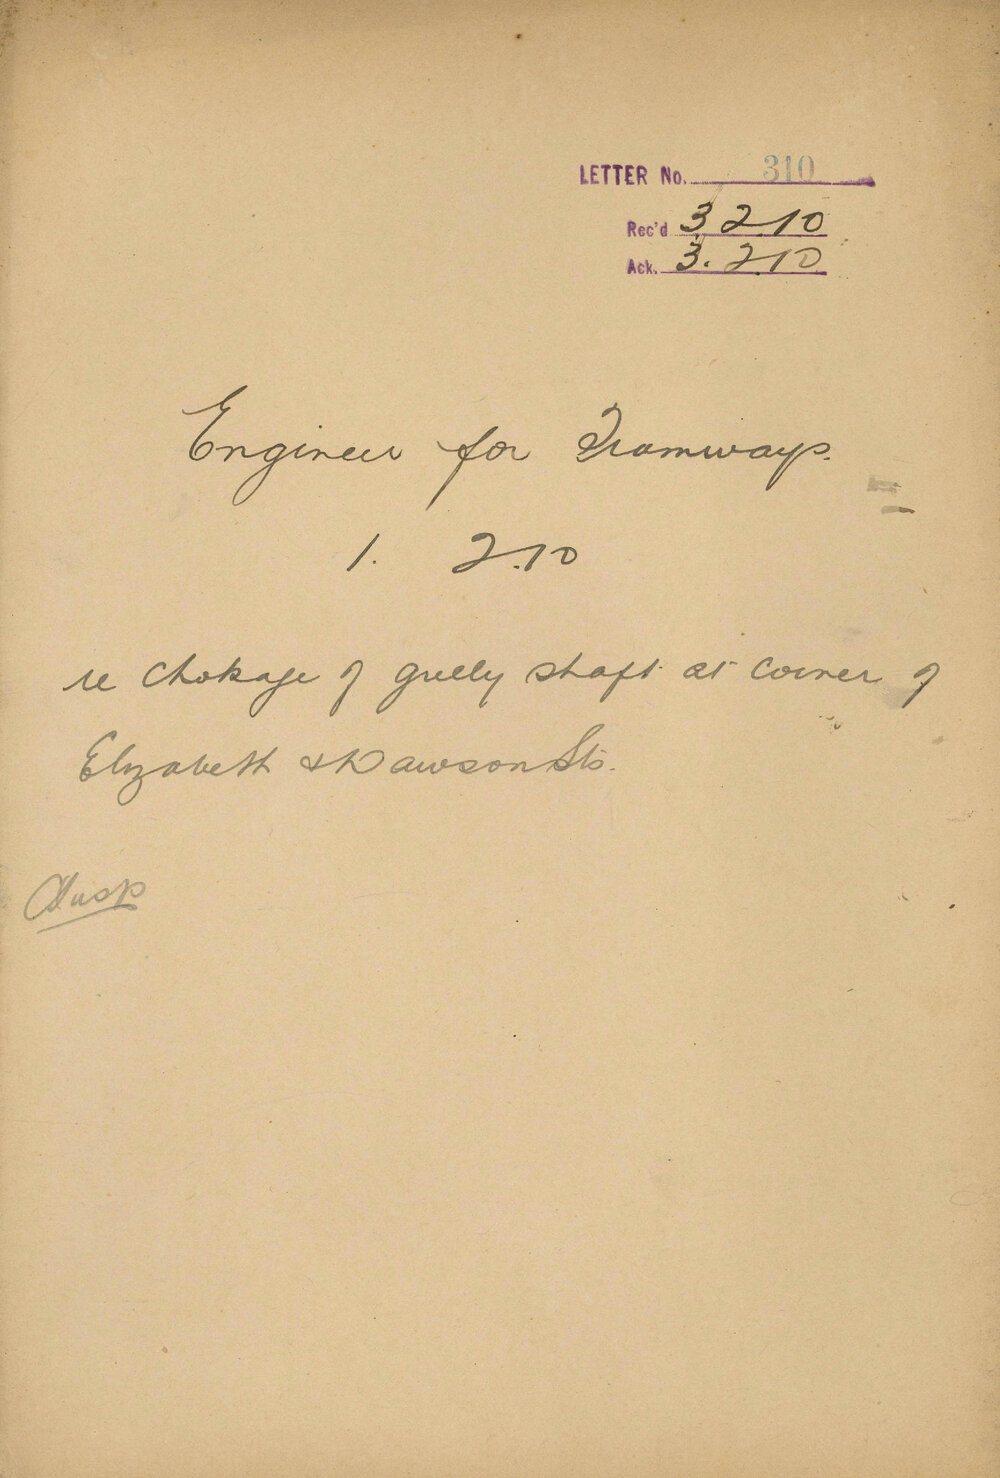 LETTER No. 310
Rec'd 3 2.10
Ack. 3. 2 10
Engineer for Tramways.
1. 2.10
re Chokage of gully shaft at corner of
Elizabeth & Dawson Sts.